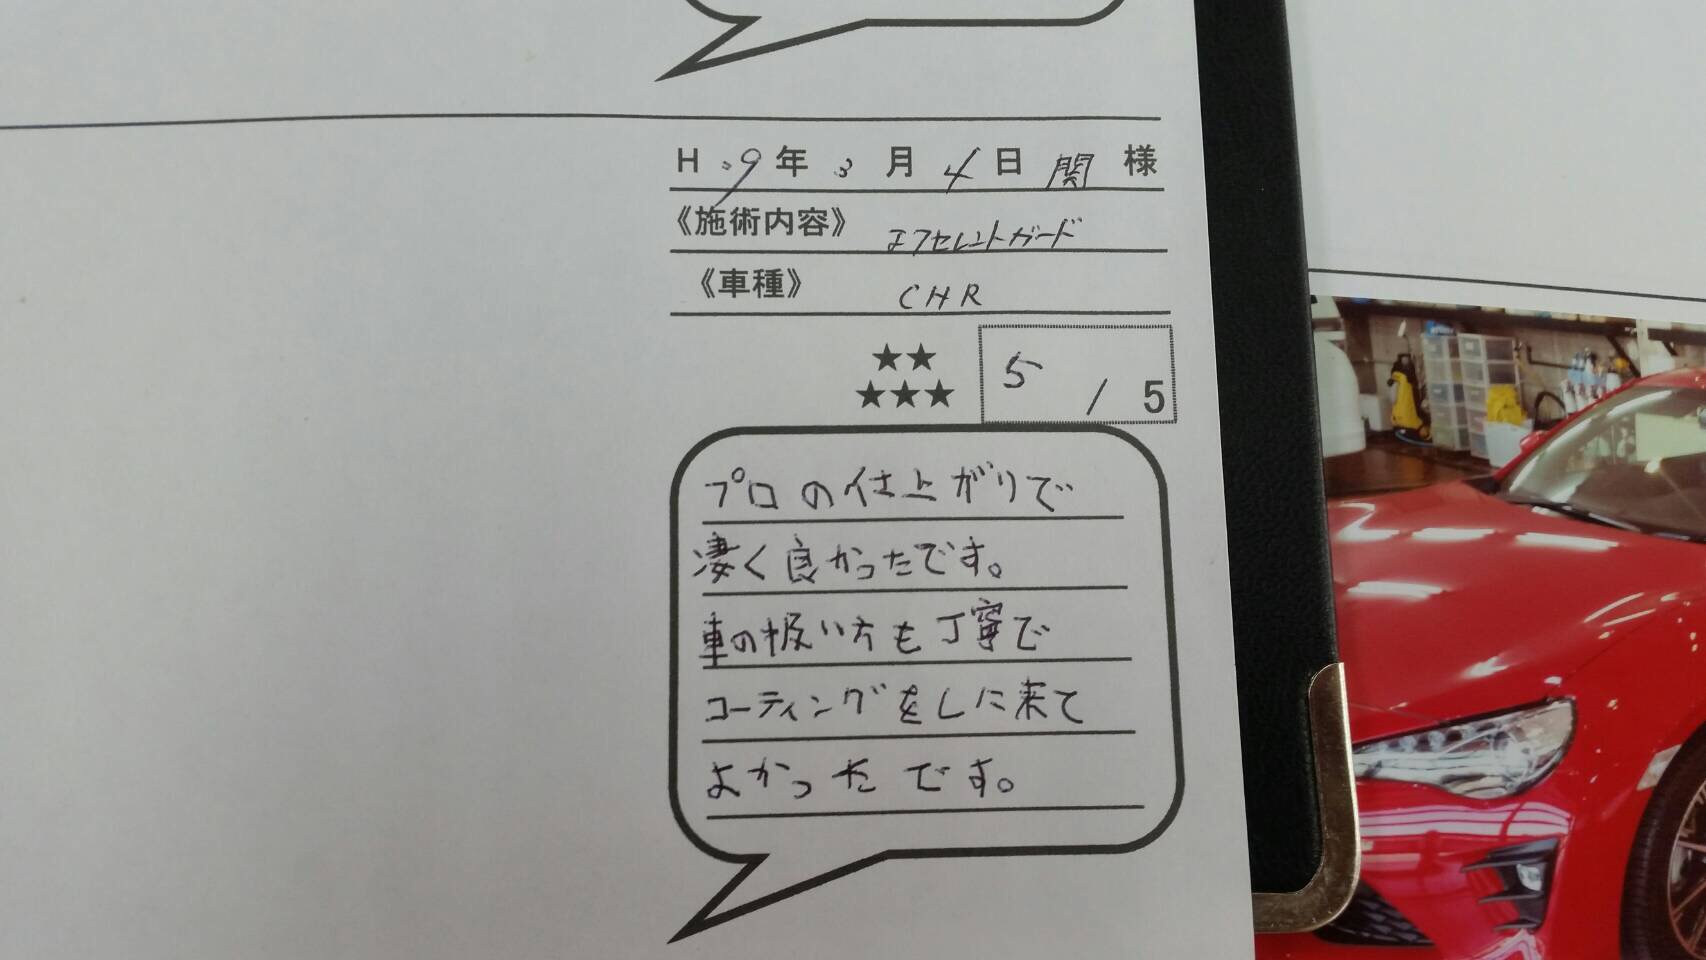 H 29年 3月 4日 関 様
《施術内容》 エクセレントガード
《車種》 CHR
★★
★★★
5 / 5
プロの仕上がりで
凄く良かったです。
車の扱い方も丁寧で
コーティングをしに来て
よかったです。